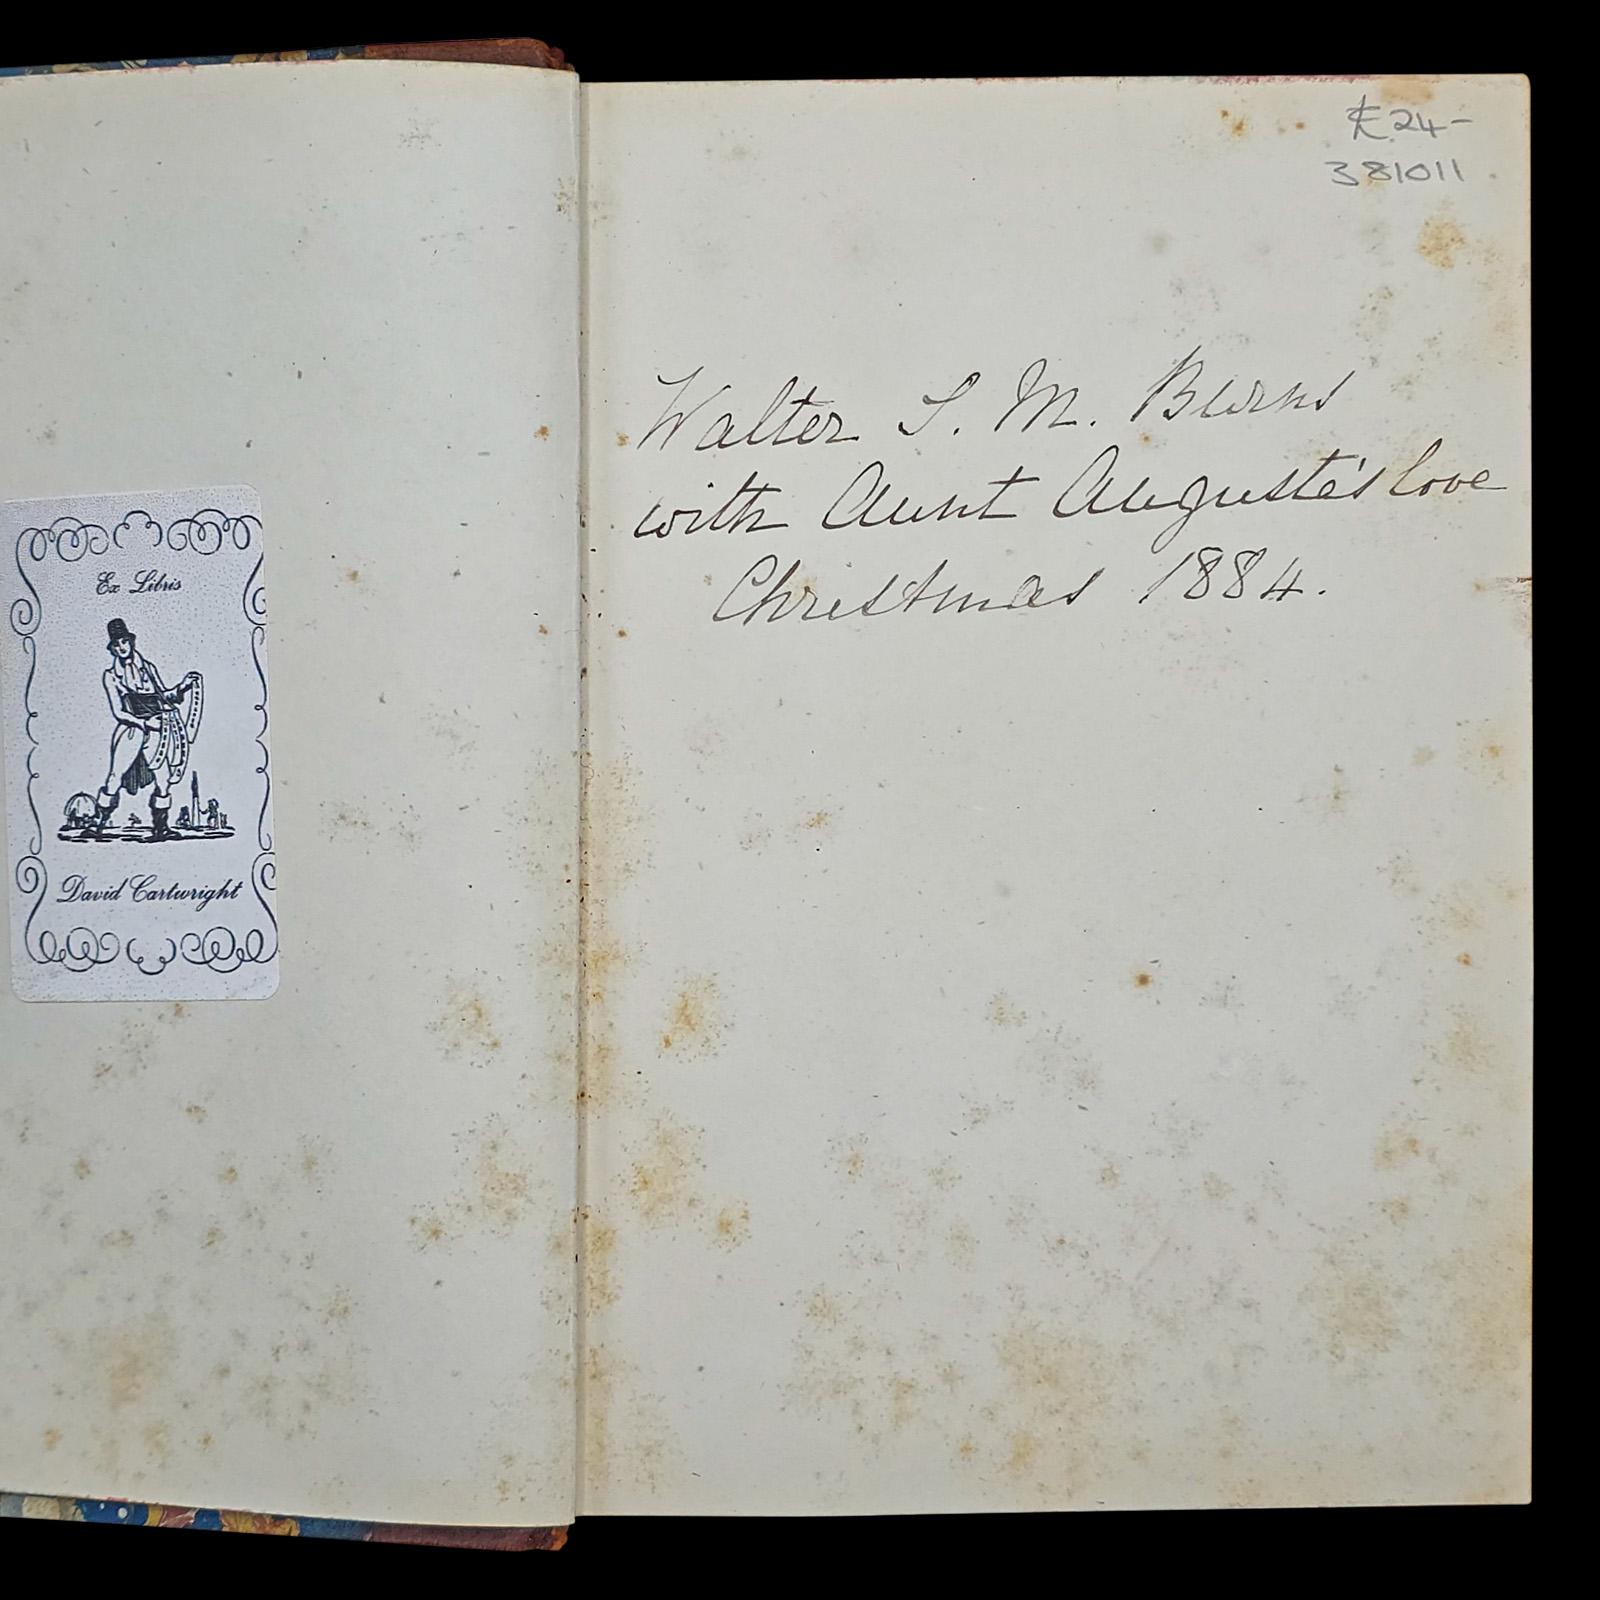 Ex Libris
David Cartwright
24-
381011
Walter S. M. Burns
with Aunt Auguste's love
Christmas 1884.